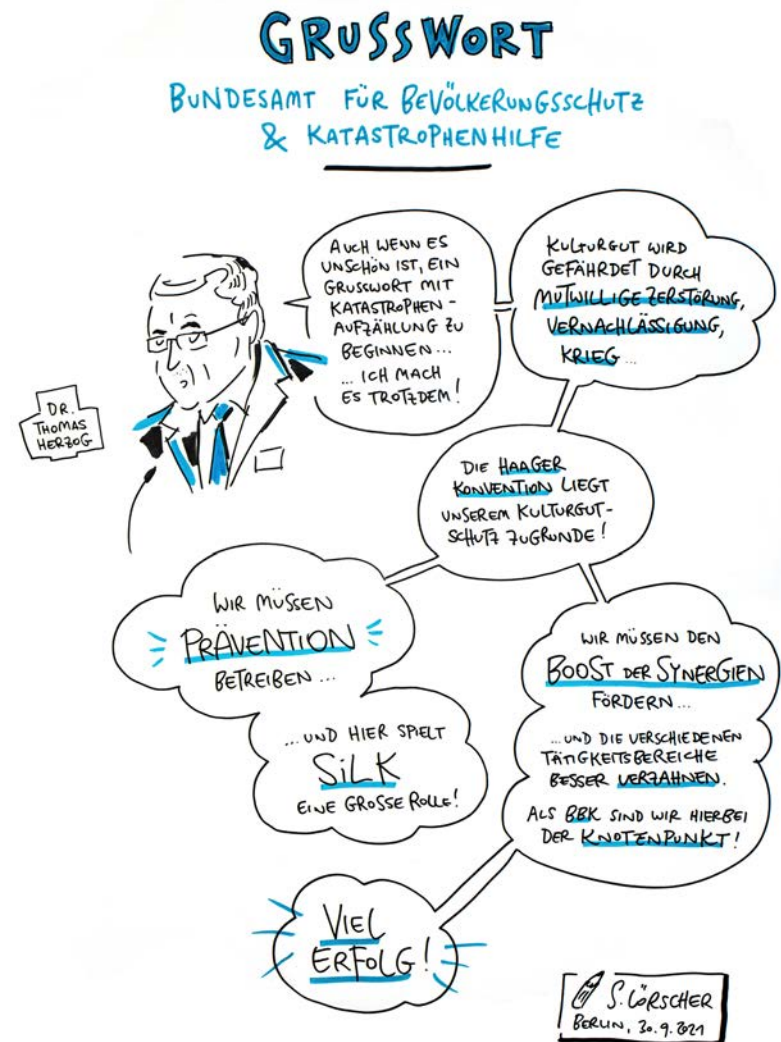 GRUSSWORT
BUNDESAMT FÜR BEVÖLKERUNGSSCHUTZ
& KATASTROPHENHILFE
DR.
THOMAS
HERZOG
AUCH WENN ES
UNSCHÖN IST, EIN
GRUSSWORT MIT
KATASTROPHEN-
AUFZÄHLUNG ZU
BEGINNEN...
... ICH MACH
ES TROTZDEM!
KULTURGUT WIRD
GEFÄHRDET DURCH
MUTWILLIGE ZERSTÖRUNG,
VERNACHLÄSSIGUNG,
KRIEG...
DIE HAAGER
KONVENTION LIEGT
UNSEREM KULTURGUT-
SCHUTZ ZUGRUNDE!
WIR MÜSSEN
PRÄVENTION
BETREIBEN...
...UND HIER SPIELT
SiLK
EINE GROSSE ROLLE!
WIR MÜSSEN DEN
BOOST DER SYNERGIEN
FÖRDERN...
...UND DIE VERSCHIEDENEN
TÄTIGKEITSBEREICHE
BESSER VERZAHNEN.
ALS BBK SIND WIR HIERBEI
DER KNOTENPUNKT!
VIEL
ERFOLG!
S. LÖRSCHER
BERLIN, 30.9.2021